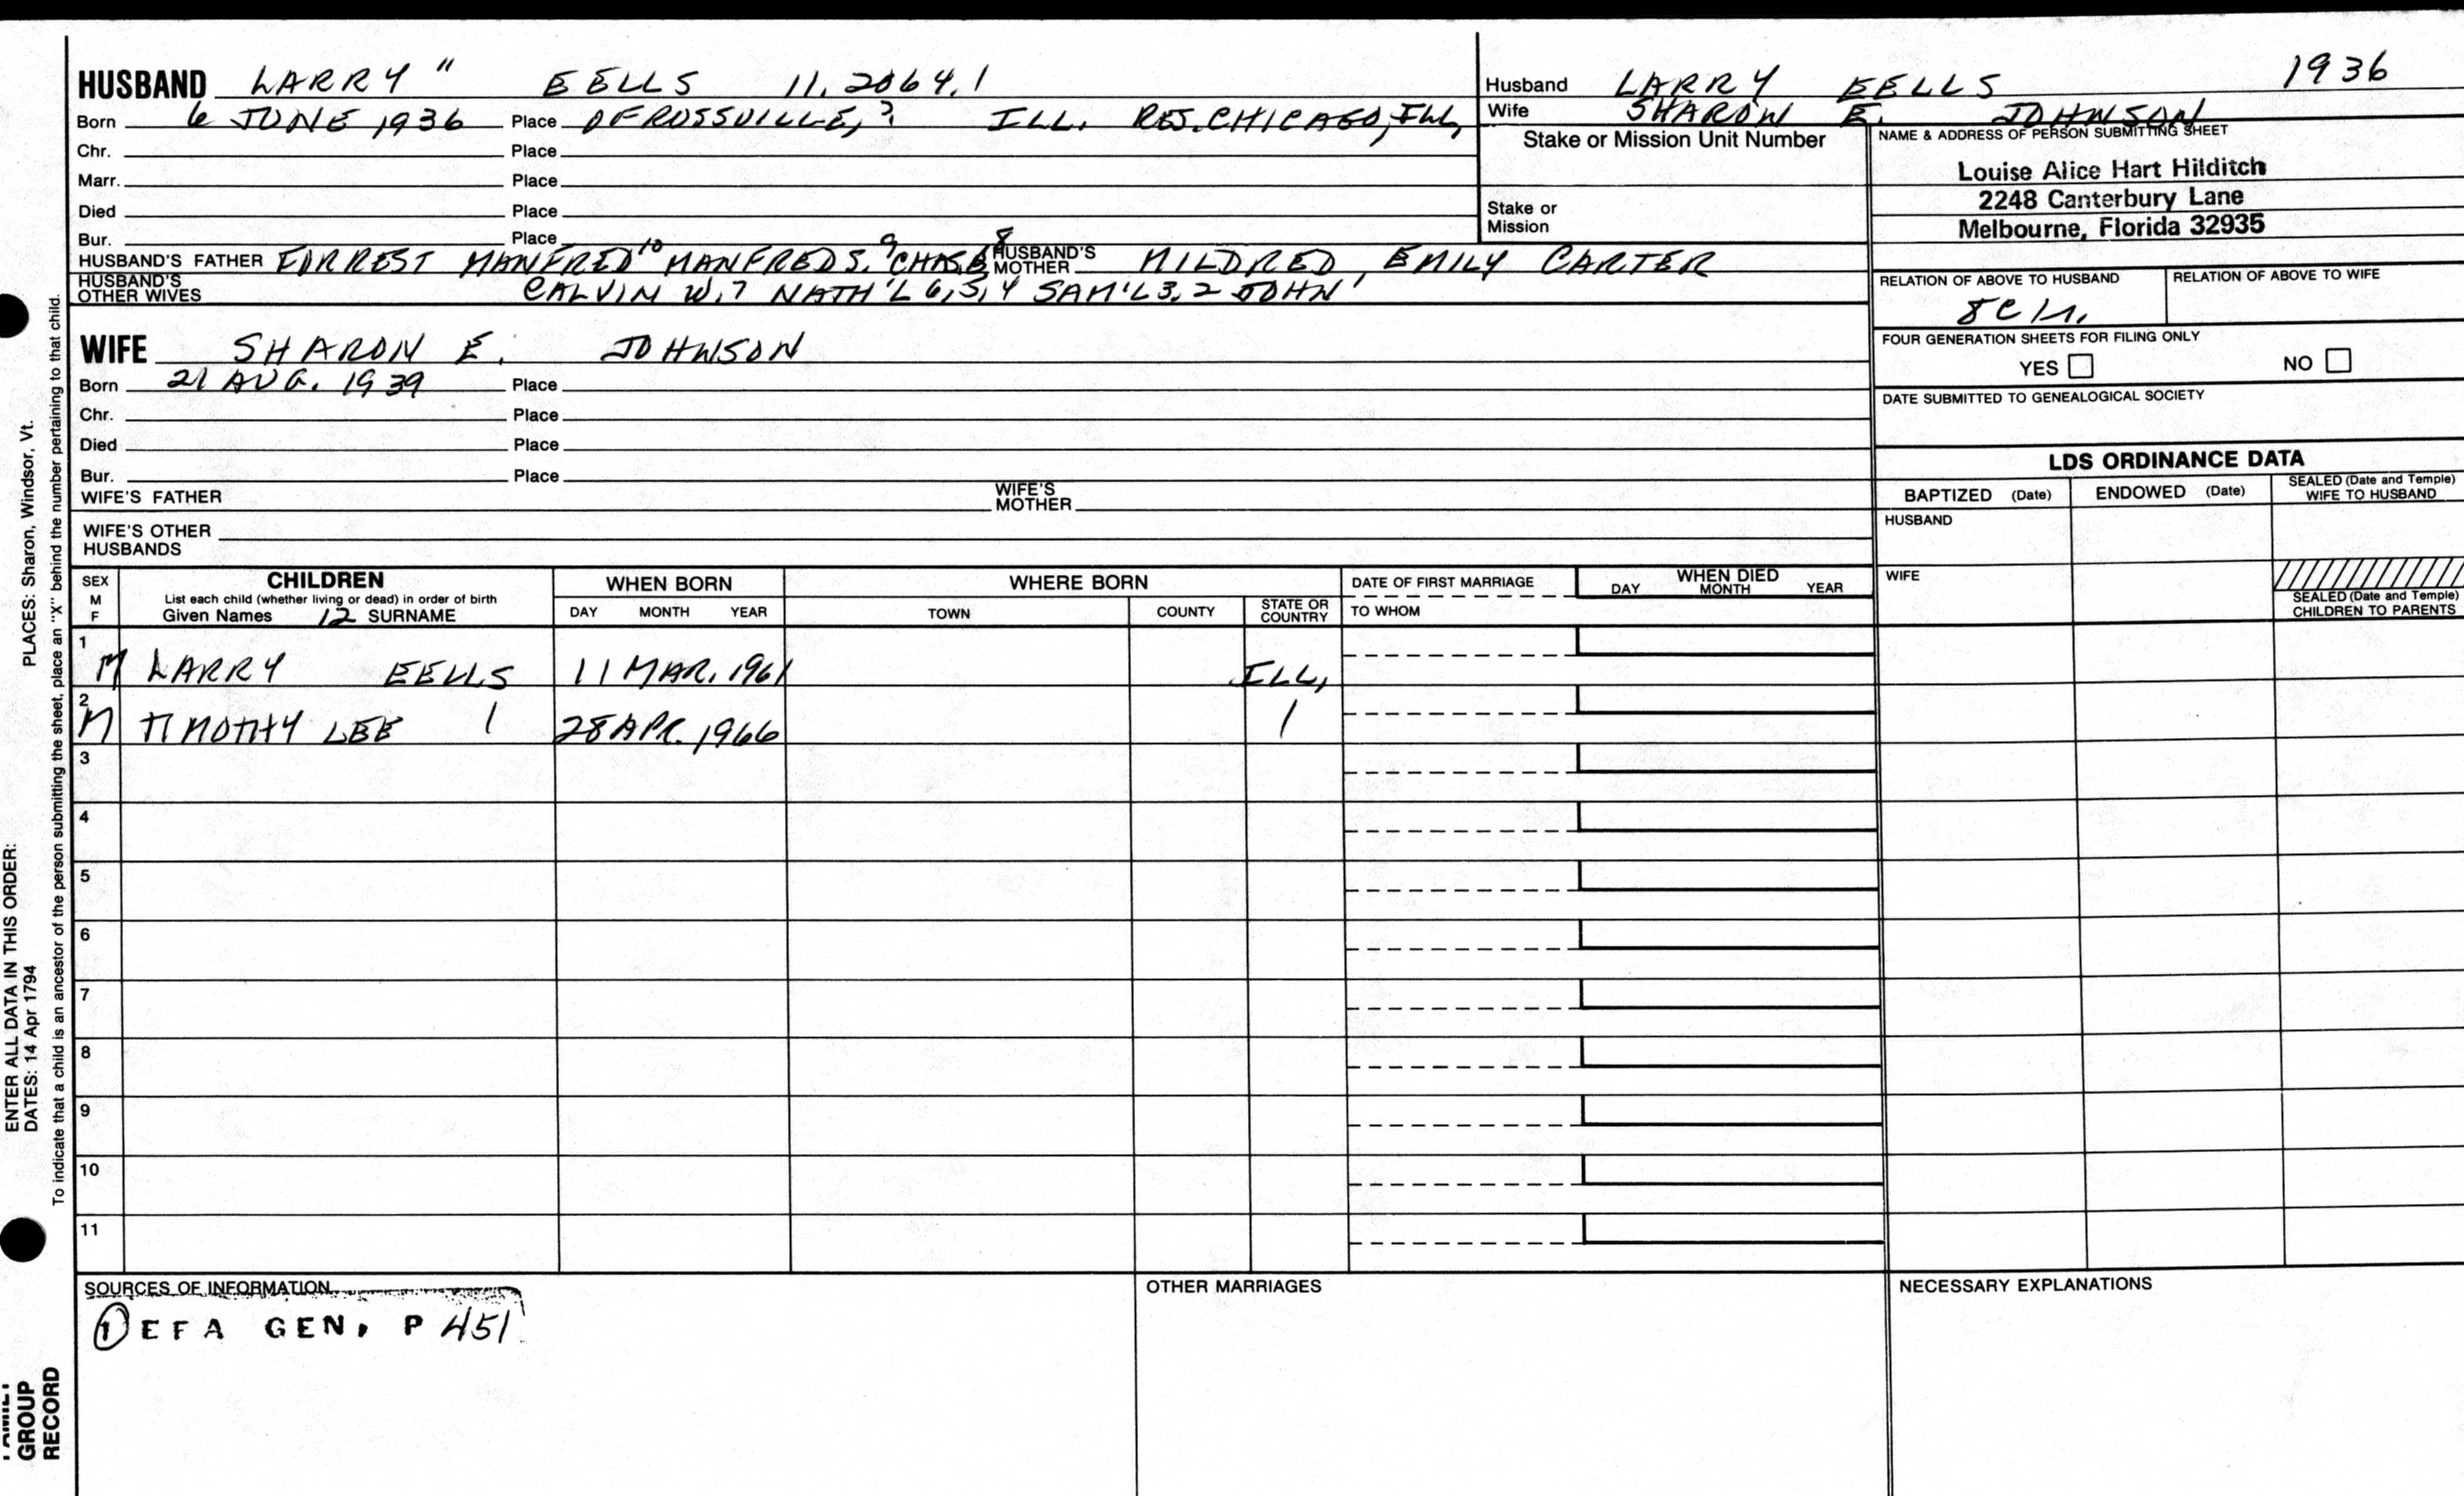 HUSBAND LARRY " EELLS 11.2064.1
Born 6 JUNE 1936 Place OF ROSSVILLE, ? ILL. RES. CHICAGO, ILL,
Chr. Place
Marr. Place
Died Place
Bur. Place
HUSBAND'S FATHER FORREST MANFRED 10 MANFRED S. 9 CHAS. E 8 HUSBAND'S MOTHER MILDRED EMILY CARTER
HUSBAND'S OTHER WIVES CALVIN W, 7 NATH'L 6, 5, 4 SAM'L 3, 2 JOHN '
Husband LARRY EELLS 1936
Wife SHARON E. JOHNSON
Stake or Mission Unit Number
Stake or Mission
NAME & ADDRESS OF PERSON SUBMITTING SHEET
Louise Alice Hart Hilditch
2248 Canterbury Lane
Melbourne, Florida 32935
RELATION OF ABOVE TO HUSBAND RELATION OF ABOVE TO WIFE
8C
FOUR GENERATION SHEETS FOR FILING ONLY
YES NO
DATE SUBMITTED TO GENEALOGICAL SOCIETY
WIFE SHARON E. JOHNSON
Born 21 AUG. 1939 Place
Chr. Place
Died Place
Bur. Place
WIFE'S FATHER WIFE'S MOTHER
WIFE'S OTHER HUSBANDS
LDS ORDINANCE DATA
BAPTIZED (Date) ENDOWED (Date) SEALED (Date and Temple) WIFE TO HUSBAND
HUSBAND
WIFE
SEALED (Date and Temple) CHILDREN TO PARENTS
SEX M F CHILDREN WHEN BORN WHERE BORN DATE OF FIRST MARRIAGE WHEN DIED
List each child (whether living or dead) in order of birth
Given Names 12 SURNAME DAY MONTH YEAR TOWN COUNTY STATE OR COUNTRY TO WHOM DAY MONTH YEAR
1 M LARRY EELLS 11 MAR. 1961 ILL,
2 M TIMOTHY LEE 1 28 APR. 1966 1
3
4
5
6
7
8
9
10
11
SOURCES OF INFORMATION OTHER MARRIAGES NECESSARY EXPLANATIONS
① EFA GEN, P 451
PLACES: Sharon, Windsor, Vt.
ENTER ALL DATA IN THIS ORDER:
DATES: 14 Apr 1794
To indicate that a child is an ancestor of the person submitting the sheet, place an "X" behind the number pertaining to that child.
GROUP
RECORD